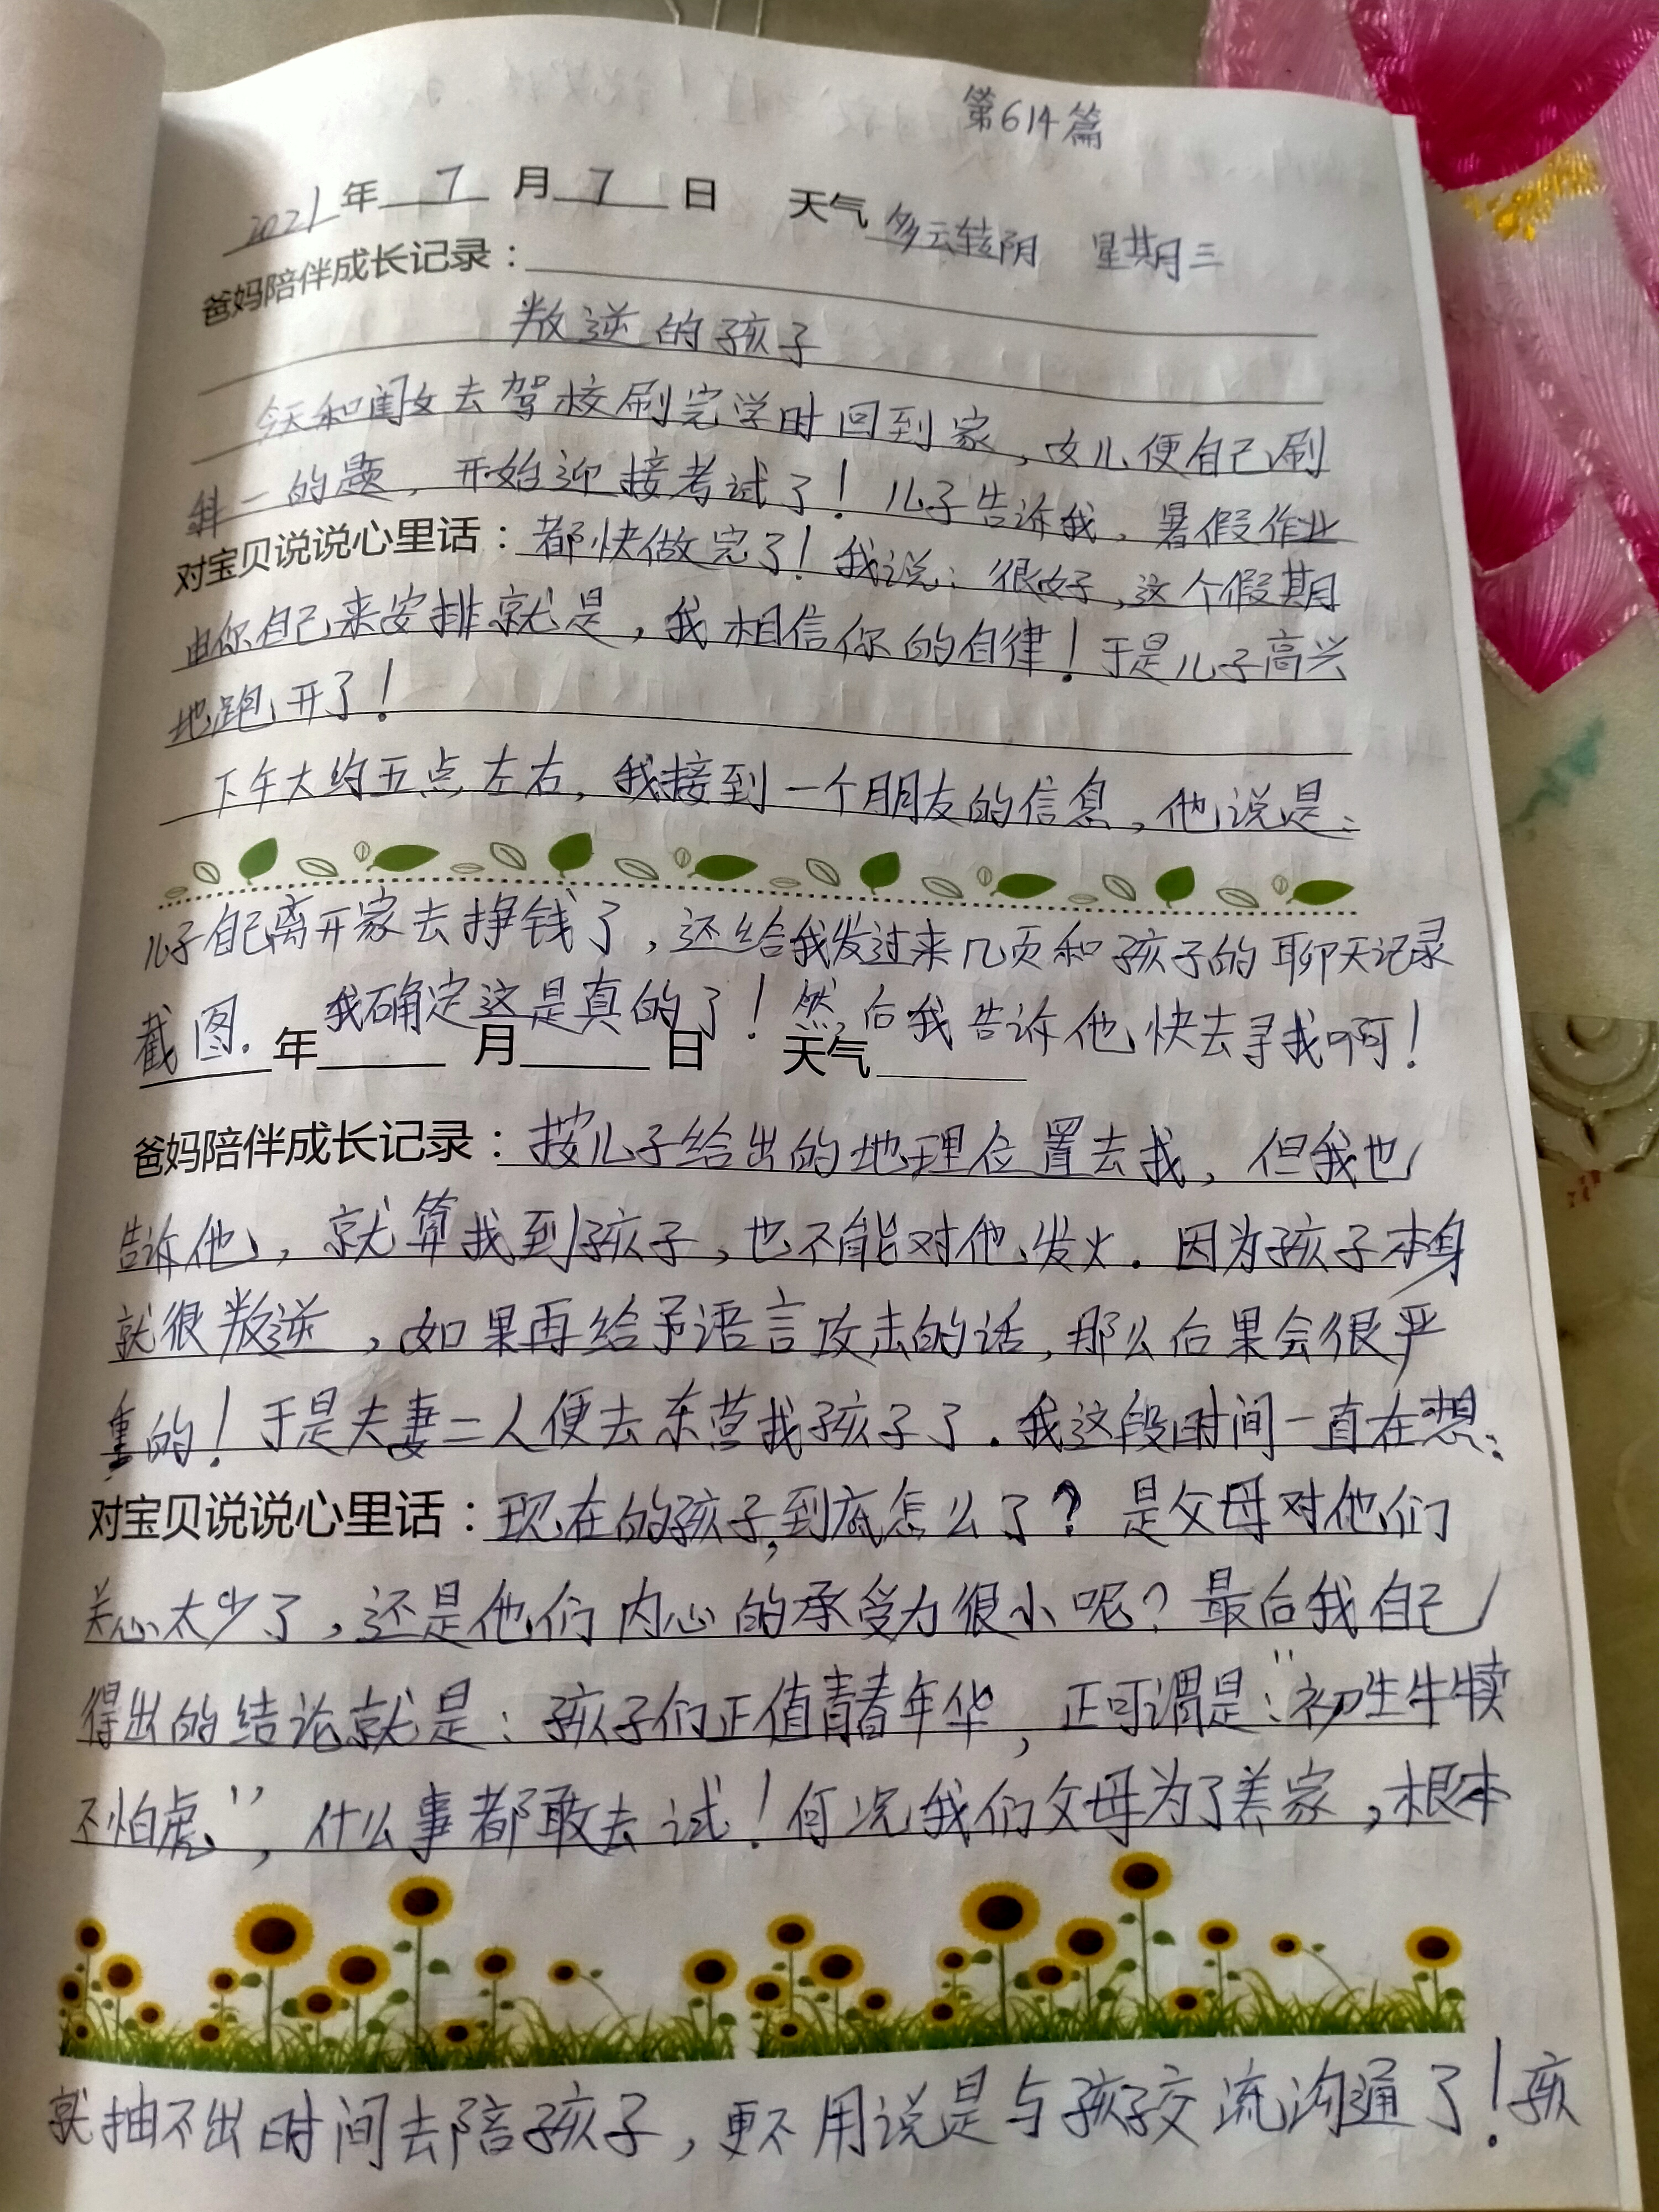 第614篇
2021年 7 月 7 日 天气 多云转阴 星期三
爸妈陪伴成长记录：
叛逆的孩子
今天和闺女去驾校刷完学时回到家，女儿便自己刷
科一的题，开始迎接考试了！儿子告诉我，暑假作业
对宝贝说说心里话：都快做完了！我说：很好，这个假期
由你自己来安排就是，我相信你的自律！于是儿子高兴
地跑开了！
下午大约五点左右，我接到一个朋友的信息，他说是：
儿子自己离开家去挣钱了，还给我发过来几页和孩子的聊天记录
截图. 我确定这是真的了！然后我告诉他快去寻找啊！
年 月 日 天气
爸妈陪伴成长记录：按儿子给出的地理位置去找，但我也
告诉他，就算找到孩子，也不能对他发火．因为孩子本身
就很叛逆，如果再给予语言攻击的话，那么后果会很严
重的！于是夫妻二人便去东营找孩子了．我这段时间一直在想：
对宝贝说说心里话：现在的孩子，到底怎么了？是父母对他们
关心太少了，还是他们内心的承受力很小呢？最后我自己
得出的结论就是：孩子们正值青春年华，正可谓是：“初生牛犊
不怕虎”，什么事都敢去试！何况我们父母为了养家，根本
就抽不出时间去陪孩子，更不用说是与孩子交流沟通了！孩